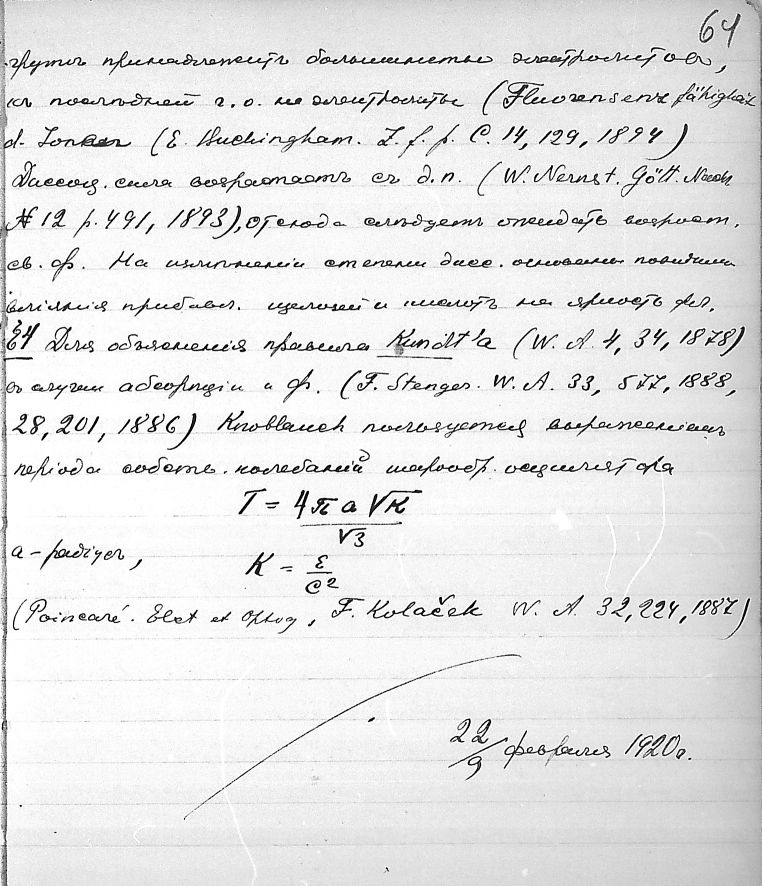 64
группъ принадлежитъ большинство электролитовъ,
къ последней г. о. не электролиты (Fluorensenz fähigkeit
d. Ionen (E. Buckingham. Z. f. p. C. 14, 129, 1894)
Диссоц. сила возрастаетъ съ д.п. (W. Nernst. Gött. Nach
№ 12 p. 491, 1893), отсюда следуетъ ожидать возраст.
св. ф. На измѣненіи степени дисс. основаны повидимо
вліянія прибавл. щелочей и кислотъ на яркость фл.
§4 Для объясненія правила Kundt'a (W. A. 4, 34, 1878)
въ случаи абсорпціи и ф. (F. Stenger. W. A. 33, 577, 1888,
28, 201, 1886) Knoblauch пользуется выраженіемъ
періода собств. колебаній шарообр. осциллятора
T = 4π a √K / √3
a - радіусъ,
K = ε / c²
(Poincaré. Elect et Optiq, F. Koláček W. A. 32, 224, 1887)
22/9 февраля 1920г.